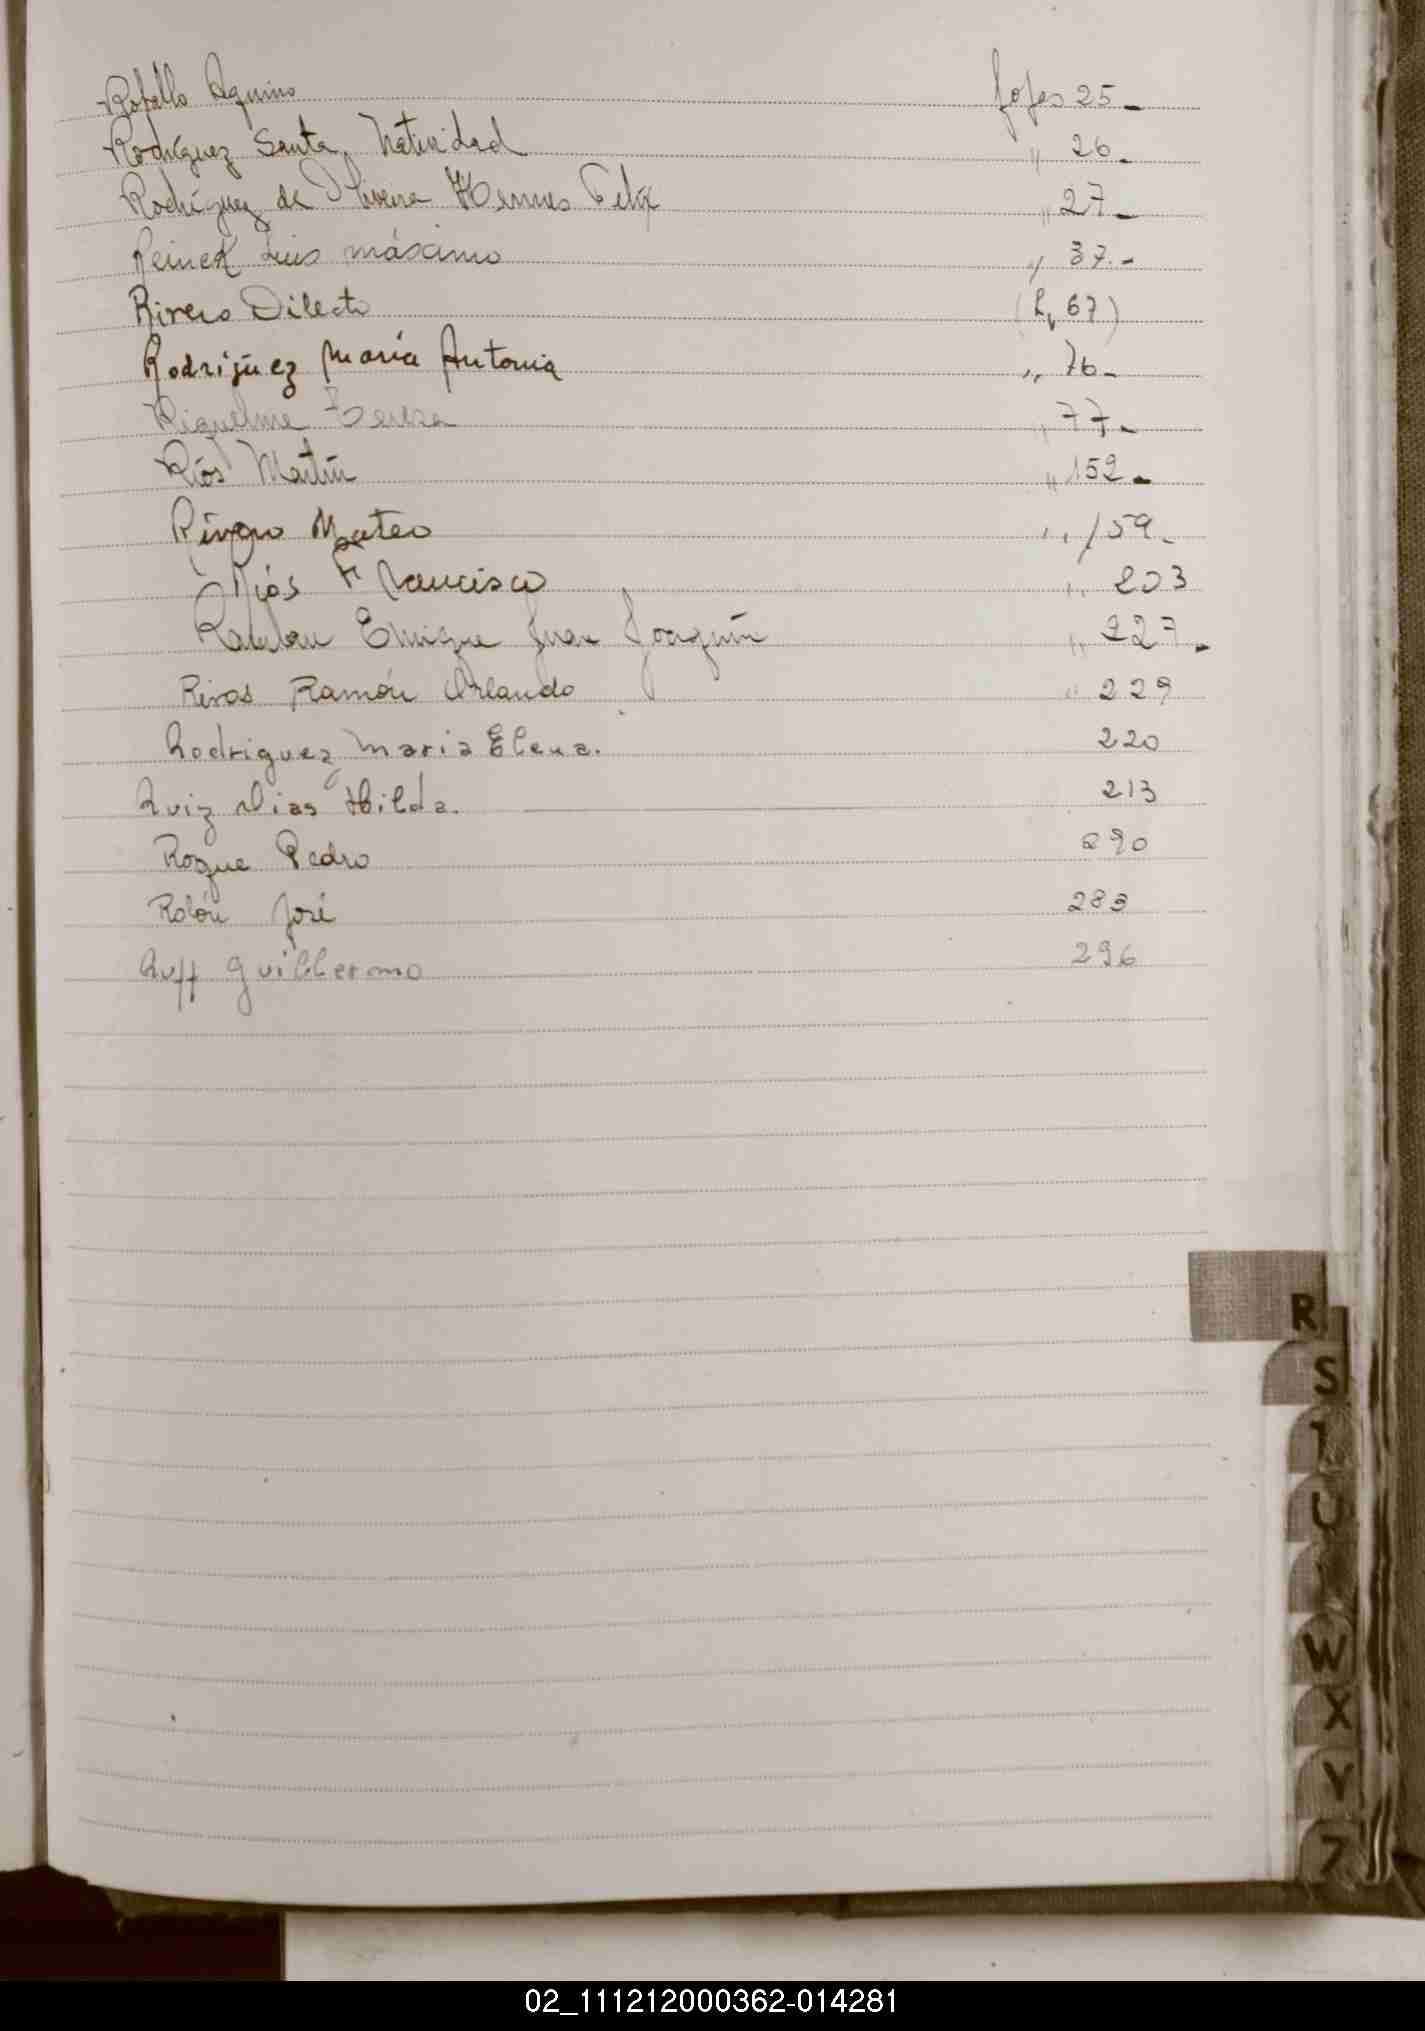 Aquino fojas 25-
Rodríguez Santa Natividad " 26-
Rodríguez de Olivera Hermes Felix " 27-
Reinek Luis máximo " 37.-
Rivero Dilecto ( " 67)
Rodríguez María Antonia " 76-
Riquelme Teresa " 77-
Ríos Martín " 152-
Mateo " 159-
Ríos Francisco " 203
Enrique Juan Joaquín " 227-
Rivas Ramón Orlando " 229
Rodriguez Maria Elena. 220
Ruiz Dias Hilda. 213
Roque Pedro 290
Rolón José 283
Ruff Guillermo 296
R
S
T
U
W
X
Y
Z
02_111212000362-014281